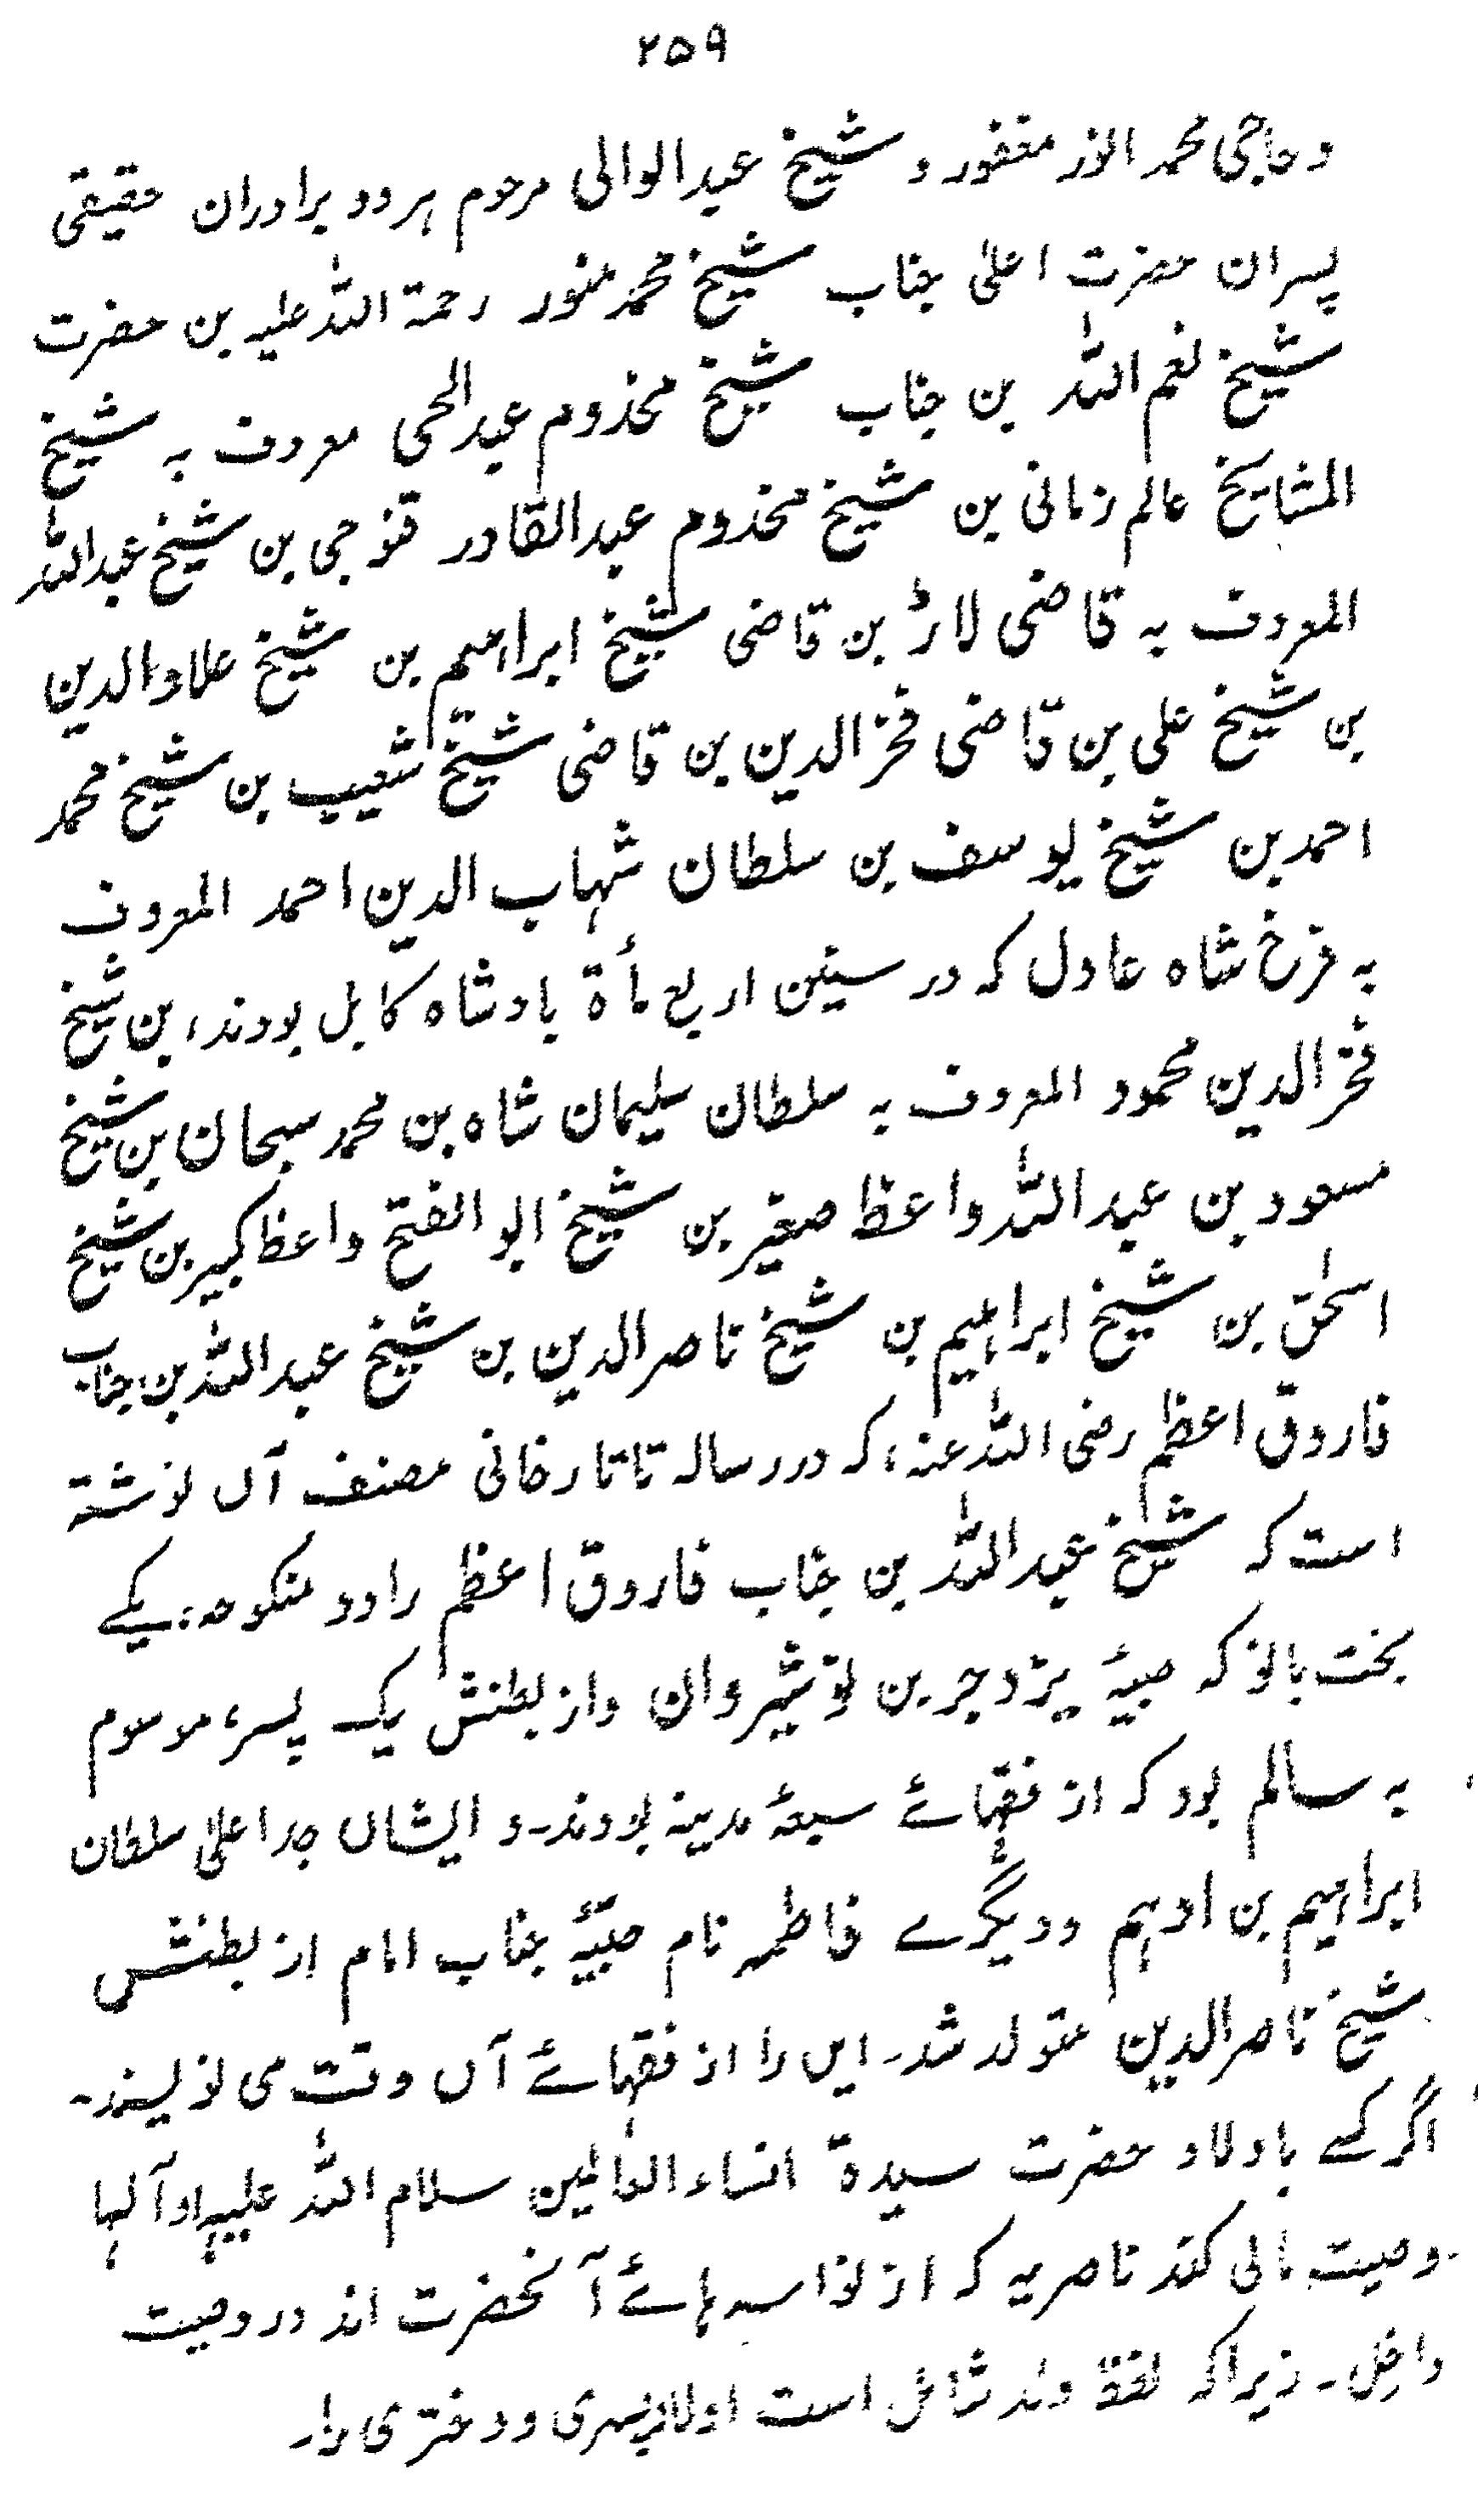 ۲۵۹
وحاجی محمد انور مغفور و شیخ عبدالوالی مرحوم ہر دو برادران حقیقی
پسران حضرت اعلیٰ جناب شیخ محمد منور رحمۃ اللہ علیہ بن حضرت
شیخ نعم اللہ بن جناب شیخ مخدوم عبدالحی معروف بہ شیخ
المشایخ عالم زمانی بن شیخ مخدوم عبدالقادر قنوجی بن شیخ عبداللہ
المعروف بہ قاضی لاڑ بن قاضی شیخ ابراہیم بن شیخ علاؤالدین
بن شیخ علی بن قاضی فخرالدین بن قاضی شیخ شعیب بن شیخ محمد
احمد بن شیخ یوسف بن سلطان شہاب الدین احمد المعروف
بہ فرخ شاہ عادل کہ در سنین اربع مأۃ بادشاہ کابل بودند، بن شیخ
فخرالدین محمود المعروف بہ سلطان سلیمان شاہ بن محمد سبحان بن شیخ
مسعود بن عبداللہ واعظ صغیر بن شیخ ابوالفتح واعظ کبیر بن شیخ
اسحٰق بن شیخ ابراہیم بن شیخ ناصرالدین بن شیخ عبداللہ بن جناب
فاروق اعظم رضی اللہ عنہ، کہ در رسالہ تاتارخانی مصنف آں نوشتہ
است کہ شیخ عبداللہ بن جناب فاروق اعظم را دو منکوحہ: یکے
بخت بانو کہ صبیۂ یزدجر بن نوشیروان واز بطنش یک پسر، موسوم
بہ سالم بود کہ از فقہائے سبعۂ مدینہ بودند۔ و ایشاں جد اعلیٰ سلطان
ابراہیم بن ادہم ودیگرے فاطمہ نام صبیۂ جناب امام از بطنش
شیخ ناصرالدین متولد شد۔ ایں را از فقہائے آں وقت می نویسند۔
اگر کسے باولاد حضرت سیدۃ انساء العالمین سلام اللہ علیہا وآلہا
وصیت مالی کند ناصریہ کہ از نواسہ ہائے آنحضرت اند در وصیت
داخل۔ زیراکہ لفظ ولد شامل است اولاد پسری ودختری را۔